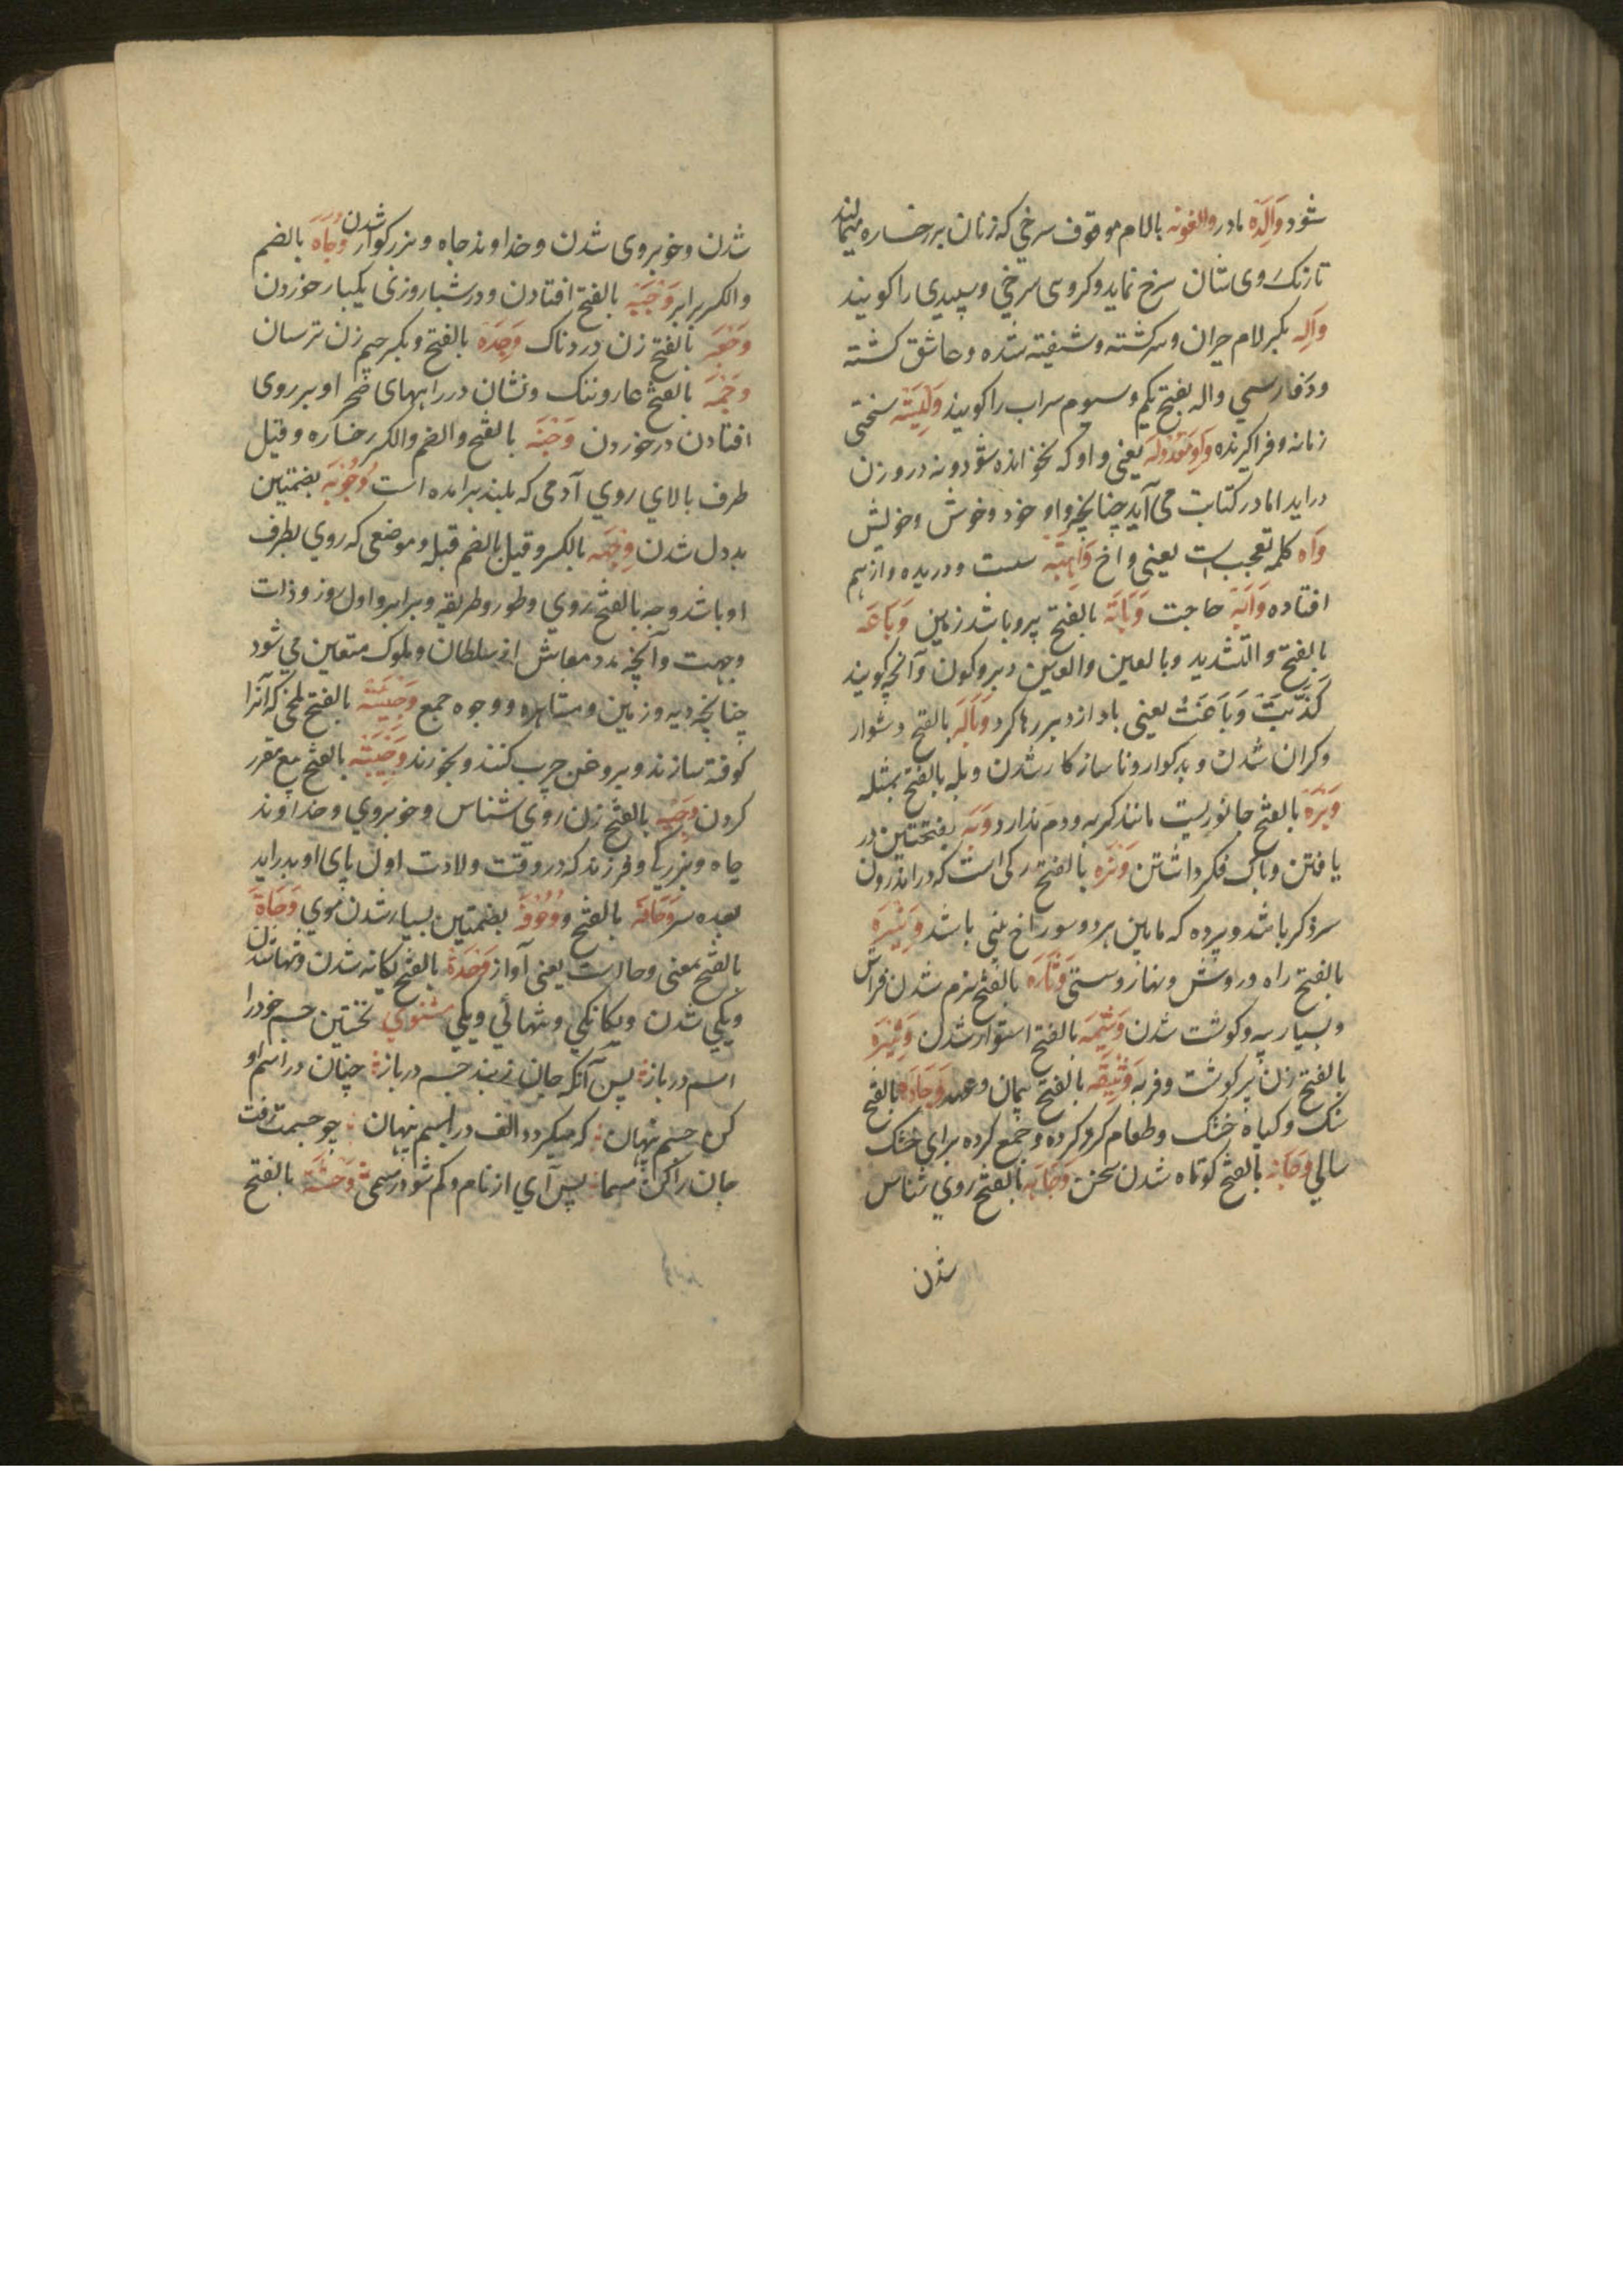 شود وَالِدَه مادر والغونه بالام موقوف سرخی که زنان بر رخساره میمالند
تا رنک روی شان سرخ نماید و کروسی سرخی و سپیدی را کویند
وَالِه بکسر لام حیران و سرکشته و شیفته شده و عاشق کشته
و در فارسی واله بفتح یکم و سیوم سراب را کویند سختی
زمانه و فراکیرنده یعنی واو که بخوانده شود و نه در وزن
دراید اما در کتابت می آید چنانچه واو خود و خوش و خویش
وَاه کلمه تعجب است یعنی واخ وَاهِیَه سست و دریده و از هم
افتاده وَابَه حاجت بالفتح پیر و باشد زمین وَبَاعَه
بالفتح و التشدید و بالعین والغین دبر و کون و آنچه کویند
کَذَبَتْ وَبَاعَتُ یعنی باد از دبر رها کرد وَبَالَه بالفتح دشوار
و کران شدن و بدکوار و ناسازکار شدن و بله بالفتح بمثله
وَبْرَه بالفتح جانوریست مانند کربه و دم ندارد وَبَه بفتحتین در
یافتن و باک فکر داشتن وَتَرَه بالفتح رکی است که در اندرون
سر ذکر باشد و پرده که مابین هر دو سوراخ بینی باشد وَتِیْرَه
بالفتح راه و روش و نهاز و سستی وَثَارَه بالفتح نرم شدن فراش
و بسیار پیه و کوشت شدن وَثِیْمَه بالفتح استوار شدن وَثِیْرَه
بالفتح زن پر کوشت و فربه وَثِیقَه بالفتح پیمان و عهد وَجَادَه بالفتح
سنک و کیاه خشک و طعام کرو کرده و جمع کرده برای خشک
سالی بالفتح کوتاه شدن سخن وَجَاهَه بالفتح روی شناس
شدن
شدن و خوبروی شدن و خداوند جاه و بزرکوار شدن وُجَاه بالضم
والکسر برابر وَجْبَه بالفتح افتادن و در شباروزی یکبار خوردن
بالفتح زن دردناک وَجِدَه بالفتح و بکسر جیم زن ترسان
وَجْمَه بالفتح عار و ننک و نشان در راههای صحرا و بر روی
افتادن در خوردن وَجْنَه بالفتح والضم والکسر رخساره و قیل
طرف بالای روی آدمی که بلند برامده است وُجُوبَه بضمتین
بددل شدن وِجْهَه بالکسر و قیل بالضم قبله و موضعی که روی بطرف
او باشد وجه بالفتح روی و طور و طریقه و برابر و اول روز و ذات
و جهت و آنچه مدد معاش از سلطان و ملوک متعین می شود
چنانچه دیه و زمین و مشاهره و وجوه جمع بالفتح ملخی که آنرا
کوفته سازند و بروغن چرب کنند و بخورند وَجِیبَه بالفتح بیع مقرر
کردن وَجِیه بالفتح زن روی شناس و خوبروی و خداوند
جاه و بزرکی و فرزند که در وقت ولادت اول پای او بدراید
بعده سر وَحَافَه بالفتح و وُحُوفَه بضمتین بسیار شدن موی وَحَاة
بالفتح بمعنی وحا است یعنی آواز وَحْدَة بالفتح یکانه شدن و تنها شدن
و یکی شدن و یکانکی و تنهائی و یکی مثنوی نخستین جسم خود را
اسم دربازه پس آنکه جان زبند جسم دربازه چنان در اسم او
کن جسم پنهان که میکردد الف در بسم پنهان چو جسمت رفت
جان را کن شیما پس آی از نام و کم شو در سمی وَحْشَة بالفتح